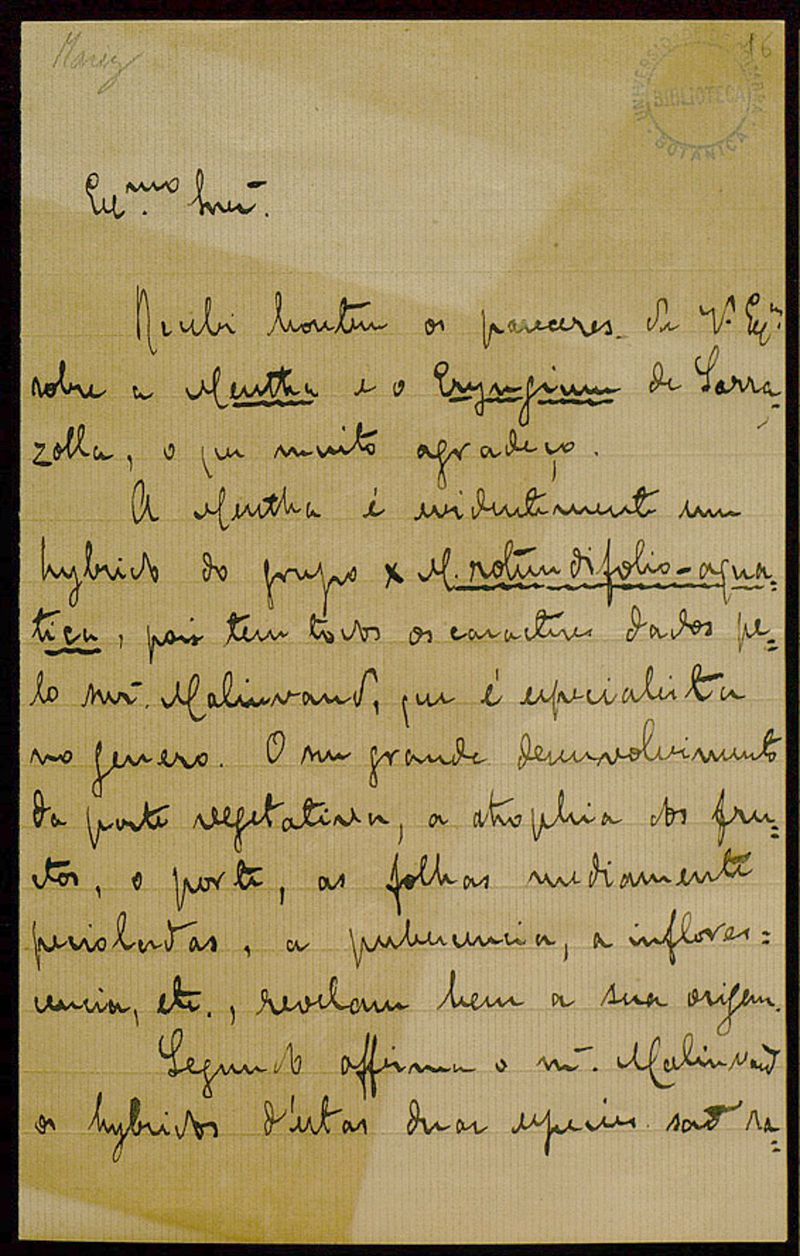 16
UNIVERSIDADE DE COIMBRA
BIBLIOTECA
BOTANICA
Exmo. Snr.
Recebi hontem os pareceres de V. Exa.
sobre a Mentha e o Eryngium de Sarra-
zolla, o que muito agradeço.
A Mentha é evidentemente um
hybrido do grupo × M. rotundifolio-aqua-
tica, pois tem todos os caracteres dados pe-
lo snr. Malinvaud, que é especialista
no genero. O seu grande desenvolvimento
da parte vegetativa, a atrophia dos fru-
ctos, o porte, as folhas mediamente
pecioladas, a pubescencia, a inflores-
cencia, etc., revelam bem a sua origem.
Segundo affirma o snr. Malinvaud
os hybridos d'estas duas especies são ra-